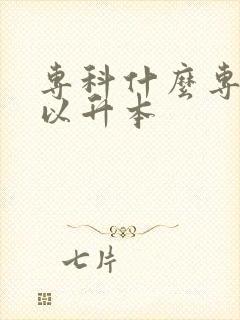 専科什麼専
以升本
七片